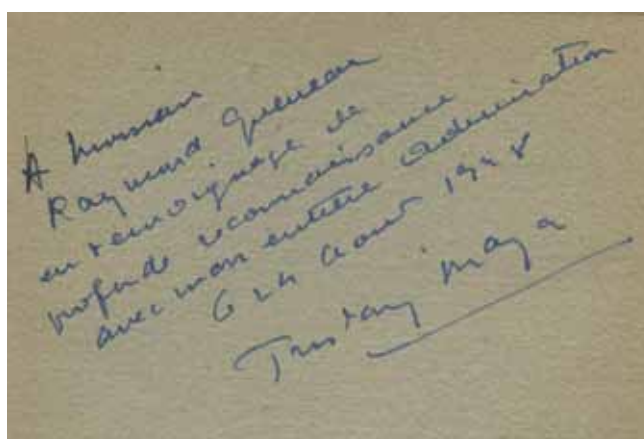 A Monsieur
Raymond Queneau
en témoignage de
profonde reconnaissance
avec mon entière admiration
Ce 24 août 1948
Tristan Maya